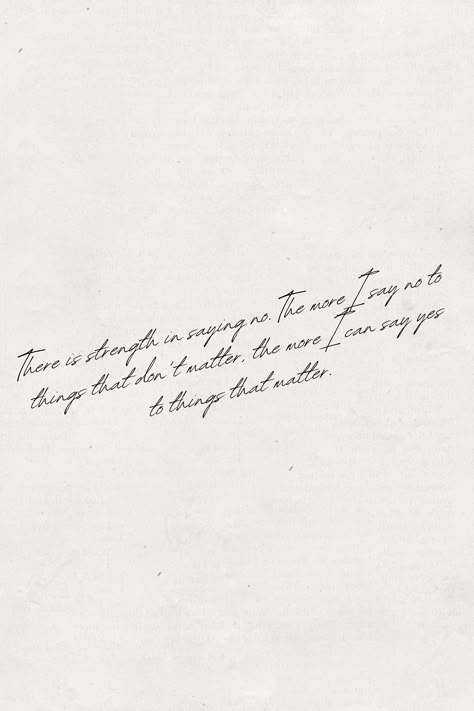 There is strength in saying no. The more I say no to
things that don't matter, the more I can say yes
to things that matter.